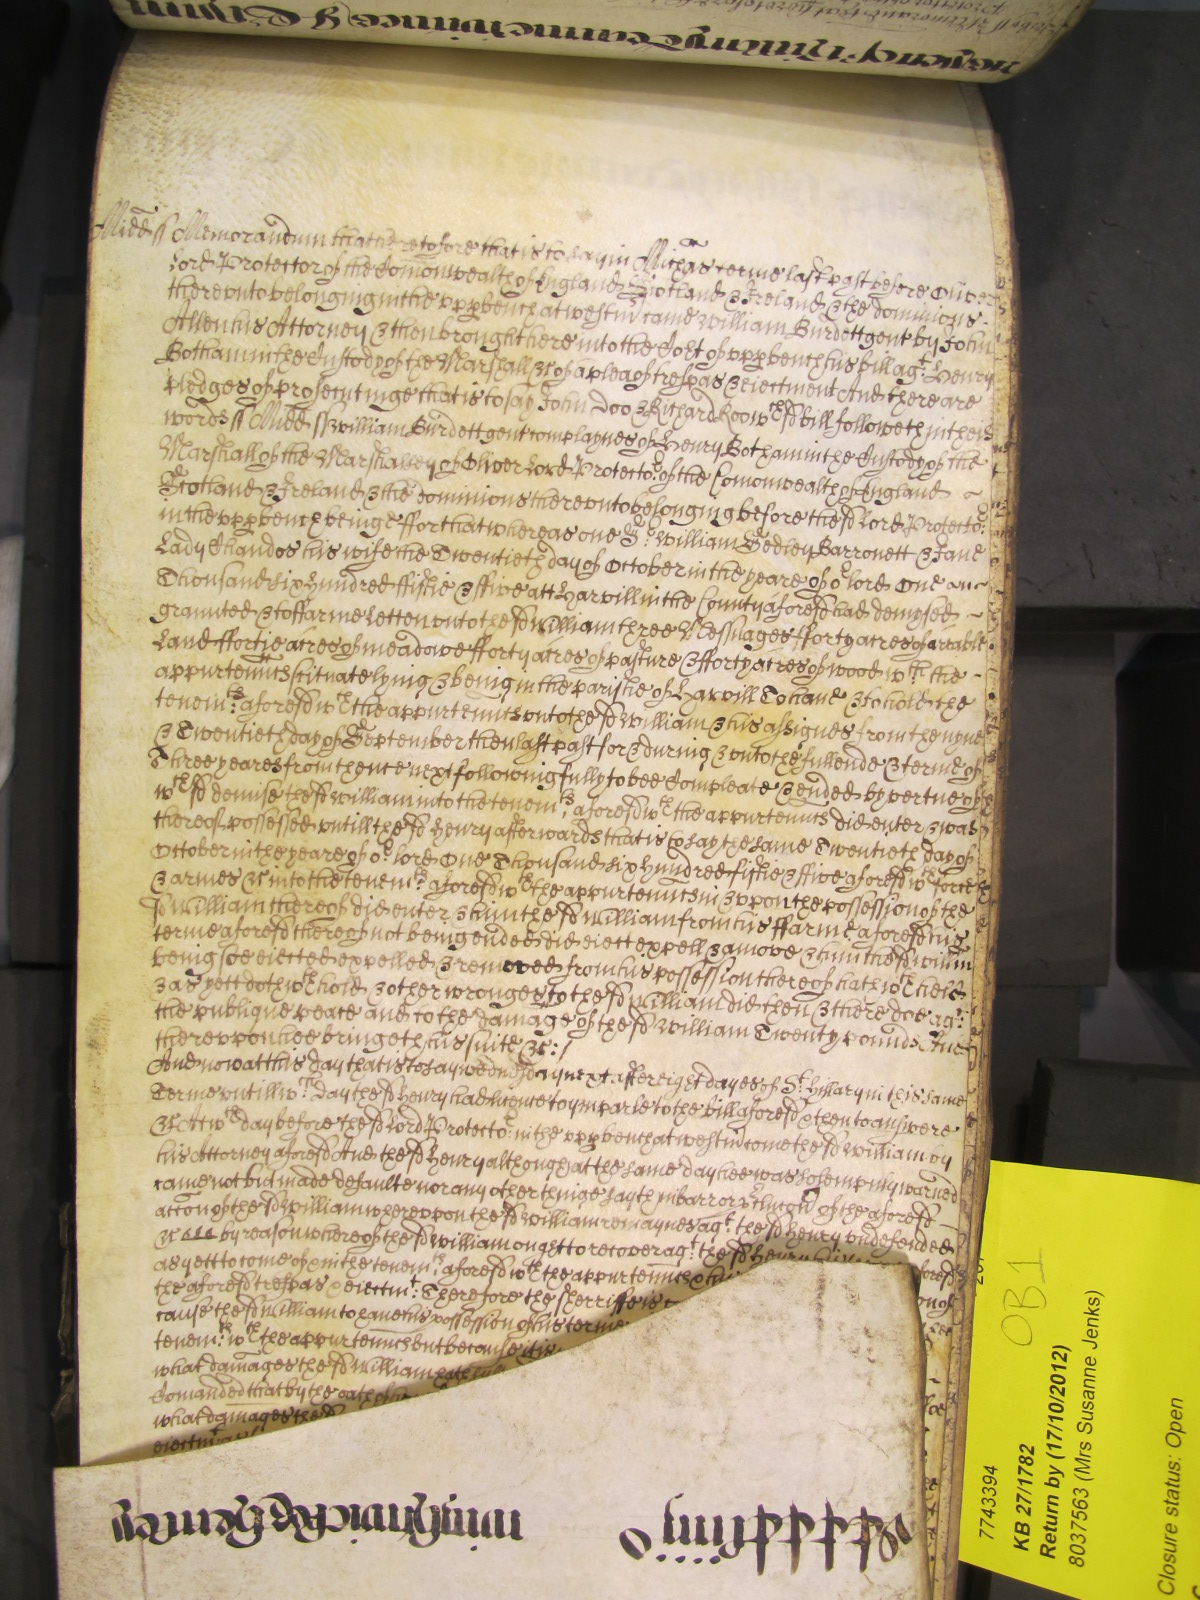 Midd ss Memorandum that heretofore that is to say in Mich'as terme last past before Oliver
Lord Protector of the Comonwealth of England Scotland & Ireland & the dominions
thereunto belonging in the upp bench at westm' came William Burdett gent by John
Allen his Attorney & then brought here into the Cort of upp bench his bill agt Henry
Botham in the Custody of the Marshall &c of a plea of trespas & eiectment And there are
pledges of prosecutinge that is to say John Doo & Richard Roo wch sd bill followeth in theis
words ss Midd ss William Burdett gent complaynes of Henry Botham in the Custody of the
Marshall of the Marshalsey of Oliver Lord Protector of the Comonwealth of England
Scotland & Ireland & the dominions thereunto belonging before the sd Lord Protector
in the upp bench being &c ffor that whereas one Sr William Sedley Barronett & Jane
Lady Chandos his wife the Twentieth day of October in the yeare of or lord One
Thousand six hundred fiftie & ffive att Harvill in the County aforesd had demysed
graunted & to ffarme letten unto the sd William three Messuages fforty acres of arrable
Land ffortie acres of meadowe fforty acres of pasture & fforty acres of wood wth the
appurtennts scituate lying & being in the parishe of Harvill To have & to hold the
tenemts aforesd wth the appurtennts unto the sd William & his assignes from the nyne
& Twentieth day of September then last past for & during & unto the full ende & terme of
Three yeares from thence next following fully to bee Compleate & ended by vertue of
wch sd demise the sd William into the tenemts aforesd wth the appurtennts did enter & was
thereof possessed untill the sd Henry afterwards that is to say the same Twentieth day of
October in the yeare of or lord One Thousand six hundred fiftie & ffive aforesd wth force
& armes &c into the tenemts aforesd wth the appurtennts in & upon the possession of the
sd William thereof did enter & him the sd William from his ffarme aforesd his
terme aforesd thereof not being ended did eiect expell & amove & him the sd Willm
being soe eiected expelled & removed from his possession thereof hath wthheld
& as yett doth wthhold & other wronges to the sd William did then & there doe agt
the publique peace and to the damage of the sd William Twenty pounds And
thereupon hee bringeth his suite &c:/
And now at this day that is to say wednesday next after eight dayes of St hillary in this same
Terme untill wch day the sd Henry had licence to ymparle to the bill aforesd & then to answere
&c Att wch day before the sd Lord Protector in the upp bench at westm' come the sd William by
his Attorney aforesd And the sd Henry although at the same day hee was solempnly warned
came not but made default nor any other thinge sayth in barr or of the aforesd
accon of the sd William whereupon the sd William remaynes agt the sd Henry undefended
&c by reason whereof the sd William ought to recover agt the sd Henry
as yett to come of & in the tenemts aforesd wth the appurtennts & aforesd
the aforesd trespas & eiectmt Therefore the Sherriffe is
cause the sd William to have his possession of his terme
tenemts wth the appurtennts but because it is
what damages the sd William hath
Comanded that by the oath of
what damages the sd
eiectmt as
7743394
KB 27/1782
Return by (17/10/2012)
8037563 (Mrs Susanne Jenks)
OB 1
Closure status: Open